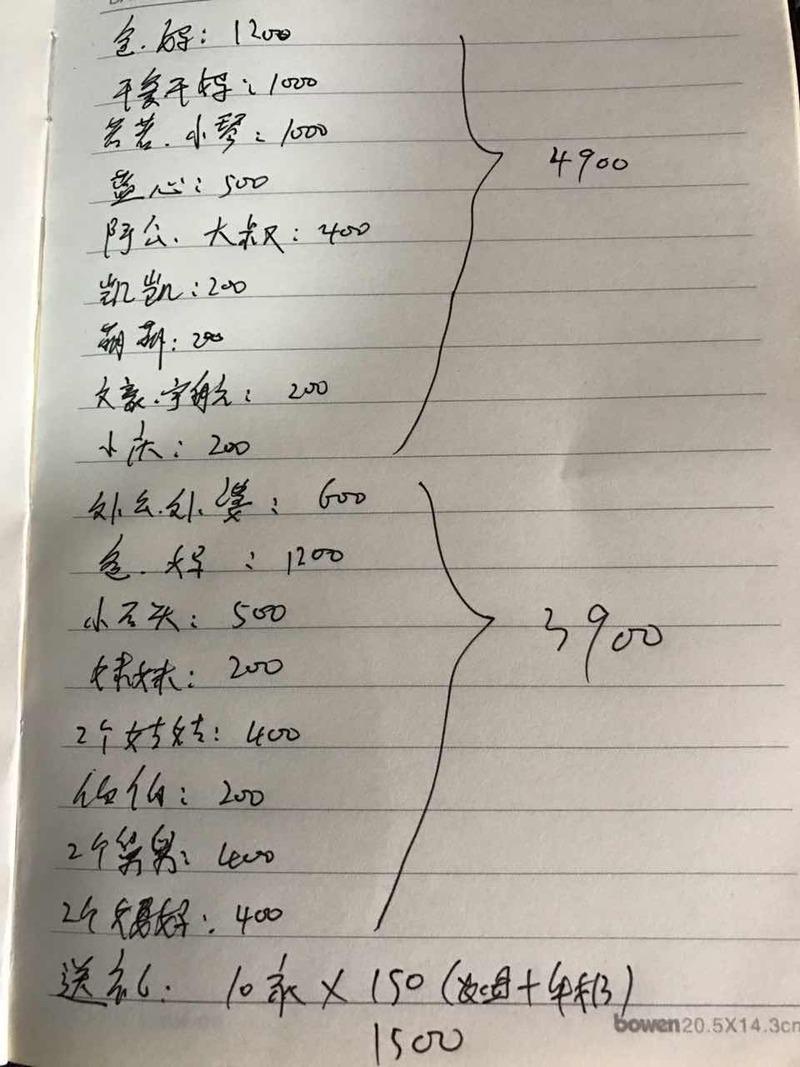 爸.妈: 1200
干爹干妈: 1000
若若.小琴: 1000
蓝心: 500
阿公.大叔: 400
凯凯: 200
萌萌: 200
文豪.宇航: 200
小庆: 200
4900
外公.外婆: 600
爸.妈: 1200
小石头: 500
妹妹: 200
2个姑姑: 400
伯伯: 200
2个舅舅: 400
2个舅妈: 400
3900
送礼: 10家 X 150 (
1500
bowen 20.5X14.3cm